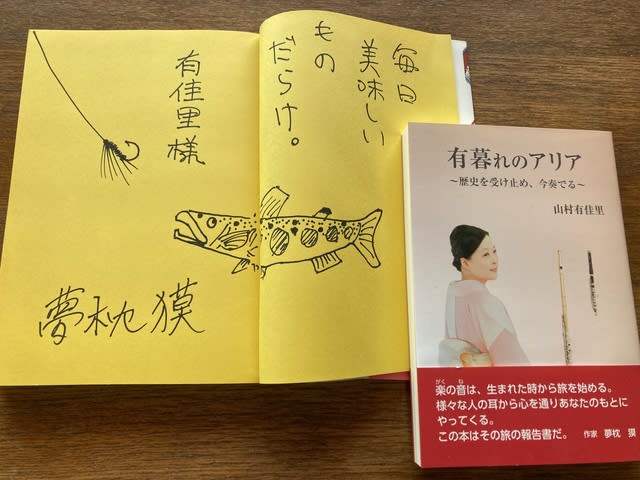 毎日
美味しい
もの
だらけ。
有佳里様
夢枕獏
有暮れのアリア
～歴史を受け止め、今奏でる～
山村有佳里
がく ね
楽の音は、生まれた時から旅を始める。
様々な人の耳から心を通りあなたのもとに
やってくる。
この本はその旅の報告書だ。 作家 夢枕 獏